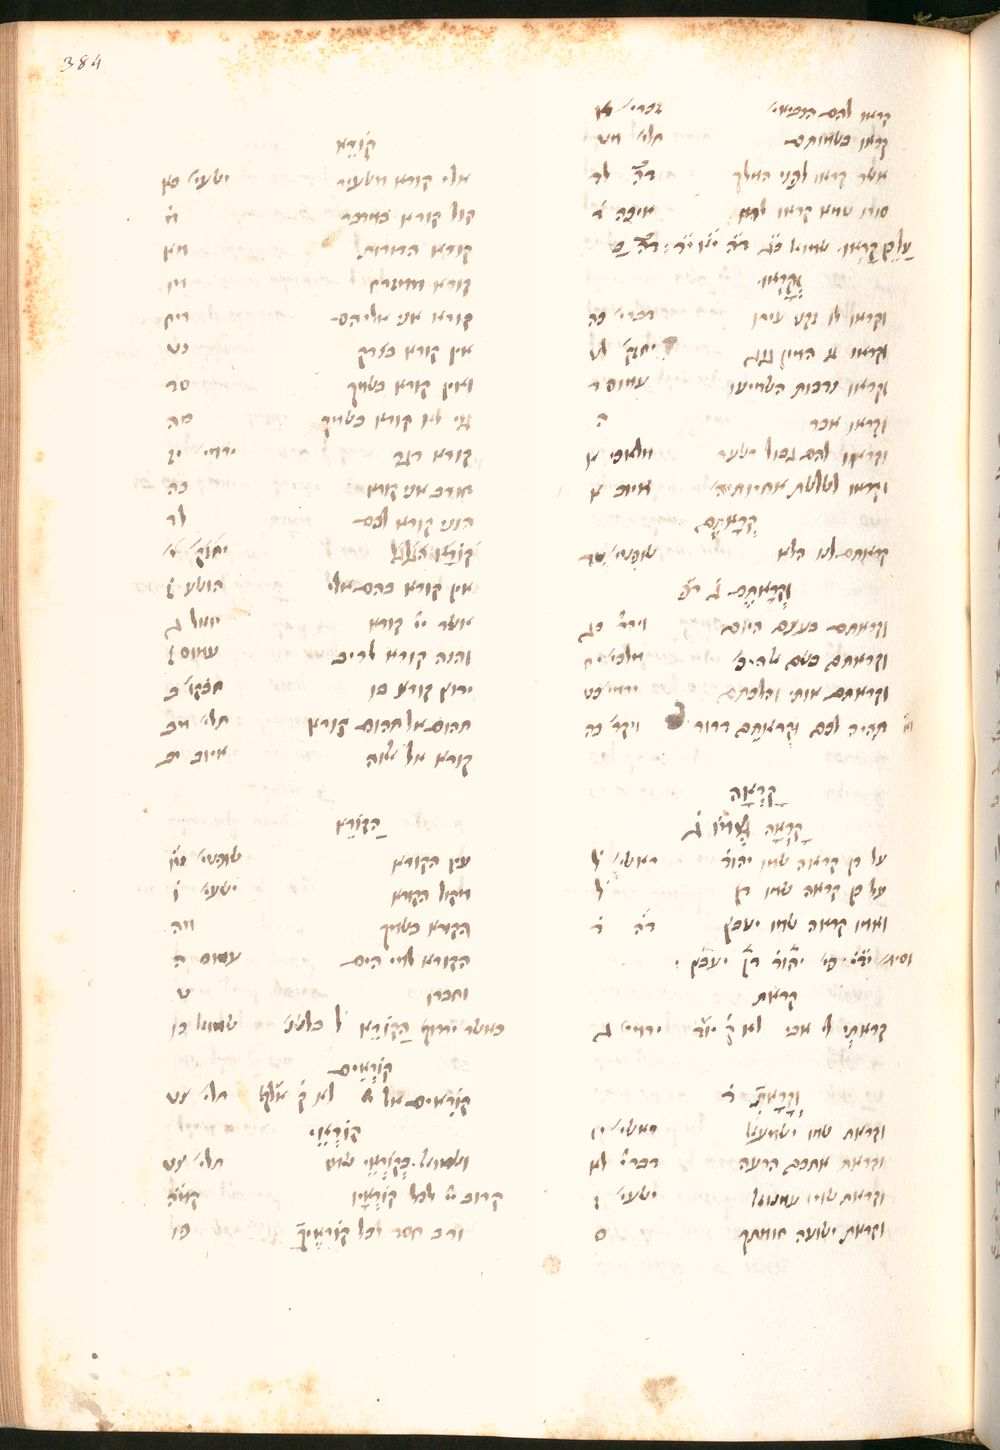 384
קראו להם הנביאי׳ זכרי׳ א
קראו בשמותם תלי׳ מט
אשר קראו לפני המלך דה׳ לד
סורו טמא קראו למו איכה ד
וָקָרְאו
וקראו לו זקני עירו דברי׳ כה
וקראו נדבות השמיעו עמוס ד
וקראו אכר ה
וקראו להם גבול רשעה מלאכי א
וקראו לשלשת אחיותיה׳ איוב א
קְרָאתֶם
קראתם לנו הלא שופטי׳ יד
וּקְרָאתֶם
וקראתם בעצם היום ויקר׳ כג
וקראתם בשם אלהיכ׳ מלכי׳ יח
וקראתם אותי והלכתם ירמי׳ כט
תהיה לכם וקראתם דרור ויקר׳ כה
קָרְאָה
קָרְאָה שְׁמוֹ ג
על כן קראה שמו יהוד׳ ראשי׳ ל
על כן קראה שמו דן ל
ואמו קראה שמו יעבץ דה׳ ד
קראת
קראתי לי אבי לא ק׳ יו׳ד ירמי׳ ג
וְקָרָאתָ ד
וקראת שמו ישמעאל ראשי׳ יו
וקראת אתכם הרעה דברי׳ לא
וקראת שמו עמנואל ישעי׳ ז
וקראת ישועה חומתך ס
קוֹרֵא
אלי קורא משעיר ישעי׳ כא
קול קורא במדבר מ
קורא הדורות מא
קורא ממזרח מו
קורא אני אליהם מח
אין קורא בצדק נט
ואין קורא בשמך סד
גוי לא קורא בשמך סה
קורא דגר ירמי׳ יז
חרב אני קורא כה
הנני קורא לכם לד
קוֹרָא הַגַּלְגַּל יחזק׳ י
אין קורא בהם אלי הושע ז
אשר יי׳ קורא יואל ג
והנה קורא לריב עמוס ז
ירוץ קורא בו חבקו׳ ב
תהום אל תהום קורא תלי׳ מב
קורא אל אלוה איוב יב
הַקּוֹרֵא
עין הקורא שופטי׳ טו
מקול הקורא ישעי׳ ו
הקורא בשמך מה
הקורא למי הים עמוס ה
וחברו ט
כאשר ירדוף הַקּוֹרֵא שמואל כו
קוֹרְאִים
קוראים אל לא ק׳ אלף תלי׳ צט
קוֹרְאָיו
ושמואל בְּקוֹרְאֵי שמו תלי׳ צט
קרוב יי׳ לכל קוֹרְאָיו קמה
ורב חסד לכל קוֹרְאֶיךָ פו